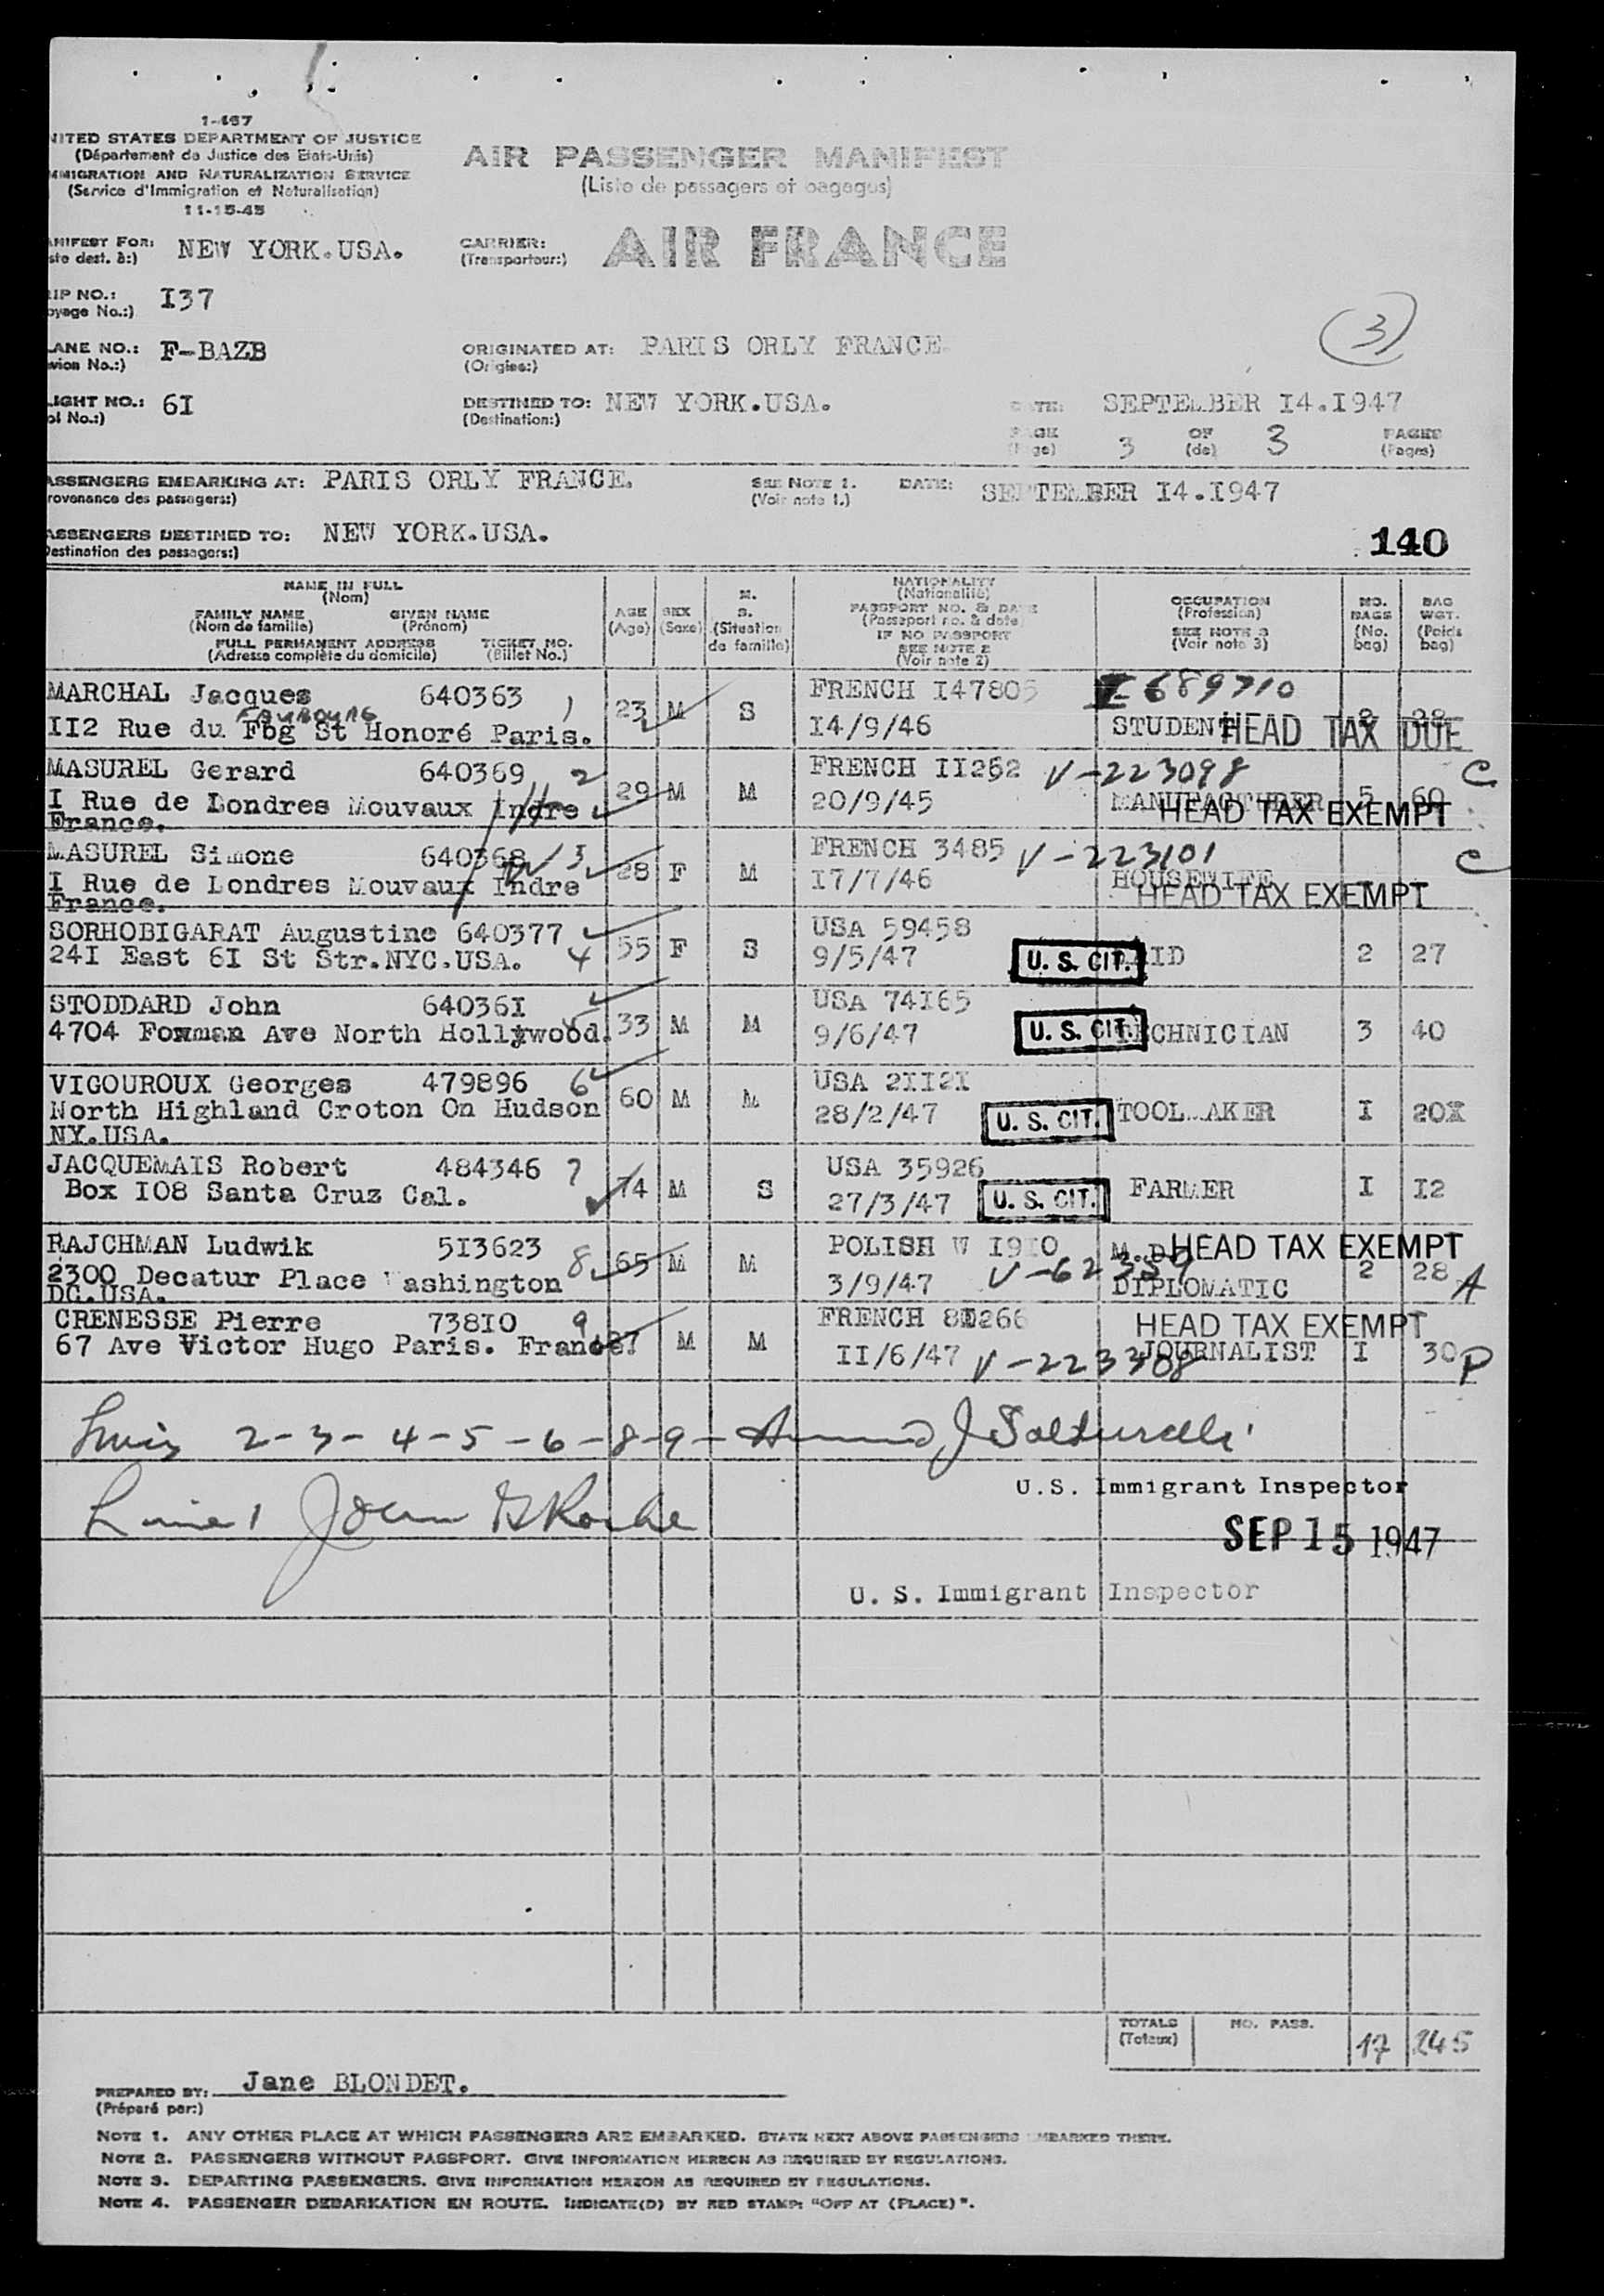 1-467
NITED STATES DEPARTMENT OF JUSTICE
(Département de Justice des Etats-Unis)
MMIGRATION AND NATURALIZATION SERVICE
(Service d'Immigration et Naturalisation)
11-15-45
AIR PASSENGER MANIFEST
(Liste de passagers et bagages)
ANIFEST FOR: NEW YORK.USA.
ste dest. à:)
CARRIER: AIR FRANCE
(Transporteur:)
RIP NO.: I37
oyage No.:)
3
LANE NO.: F-BAZB
vion No.:)
ORIGINATED AT: PARIS ORLY FRANCE.
(Origine:)
LIGHT NO.: 6I
ol No.:)
DESTINED TO: NEW YORK.USA.
(Destination:)
DATE: SEPTEMBER I4.I947
PAGE 3 OF 3 PAGES
(Page) (de) (Pages)
ASSENGERS EMBARKING AT: PARIS ORLY FRANCE. SEE NOTE 1. DATE: SEPTEMBER I4.I947
rovenance des passagers:) (Voir note 1.)
ASSENGERS DESTINED TO: NEW YORK.USA.
Destination des passagers:)
140
NAME IN FULL
(Nom)
FAMILY NAME GIVEN NAME
(Nom de famille) (Prénom)
FULL PERMANENT ADDRESS TICKET NO.
(Adresse complète du domicile) (Billet No.)
AGE
(Age)
SEX
(Sexe)
M.
S.
(Situation
de famille)
NATIONALITY
(Nationalité)
PASSPORT NO. & DATE
(Passeport no. & date)
IF NO PASSPORT
SEE NOTE 2
(Voir note 2)
OCCUPATION
(Profession)
SEE NOTE 3
(Voir note 3)
NO.
BAGS
(No.
bag)
BAG
WGT.
(Poids
bag)
MARCHAL Jacques 640363 1 23 M S FRENCH I47805 I 689710
FAUBOURG
II2 Rue du Fbg St Honoré Paris. I4/9/46 STUDENT HEAD TAX DUE
MASUREL Gerard 640369 2 29 M M FRENCH II252 V-223098 C
I Rue de Londres Mouvaux Indre 20/9/45 MANUFACTURER 5 60
France. HEAD TAX EXEMPT
MASUREL Simone 640368 3 28 F M FRENCH 3485 V-223101 C
I Rue de Londres Mouvaux Indre I7/7/46 HOUSEWIFE
France. HEAD TAX EXEMPT
SORHOBIGARAT Augustine 640377 55 F S USA 59458
24I East 6I St Str.NYC.USA. 4 9/5/47 U. S. CIT. MAID 2 27
STODDARD John 64036I 5 33 M M USA 74I65
4704 Forman Ave North Hollywood. 9/6/47 U. S. CIT. TECHNICIAN 3 40
VIGOUROUX Georges 479896 6 60 M M USA 2II2I
North Highland Croton On Hudson 28/2/47 U. S. CIT. TOOL MAKER I 20
NY.USA.
JACQUEMAIS Robert 484346 7 74 M S USA 35926
Box I08 Santa Cruz Cal. 27/3/47 U. S. CIT. FARMER I I2
RAJCHMAN Ludwik 5I3623 8 65 M M POLISH W I9I0 M.D. HEAD TAX EXEMPT
2300 Decatur Place Washington 3/9/47 V-62359 DIPLOMATIC 2 28 A
DC.USA.
CRENESSE Pierre 738I0 9 37 M M FRENCH 8D266 HEAD TAX EXEMPT
67 Ave Victor Hugo Paris. France. II/6/47 V-223308 JOURNALIST I 30 P
2-3-4-5-6-8-9-
U.S. Immigrant Inspector
SEP 15 1947
U. S. Immigrant Inspector
TOTALS NO. PASS. 17 245
(Totaux)
PREPARED BY: Jane BLONDET.
(Préparé par:)
NOTE 1. ANY OTHER PLACE AT WHICH PASSENGERS ARE EMBARKED. STATE NEXT ABOVE PASSENGERS EMBARKED THERE.
NOTE 2. PASSENGERS WITHOUT PASSPORT. GIVE INFORMATION HEREON AS REQUIRED BY REGULATIONS.
NOTE 3. DEPARTING PASSENGERS. GIVE INFORMATION HEREON AS REQUIRED BY REGULATIONS.
NOTE 4. PASSENGER DEBARKATION EN ROUTE. INDICATE(D) BY RED STAMP: "OFF AT (PLACE)".